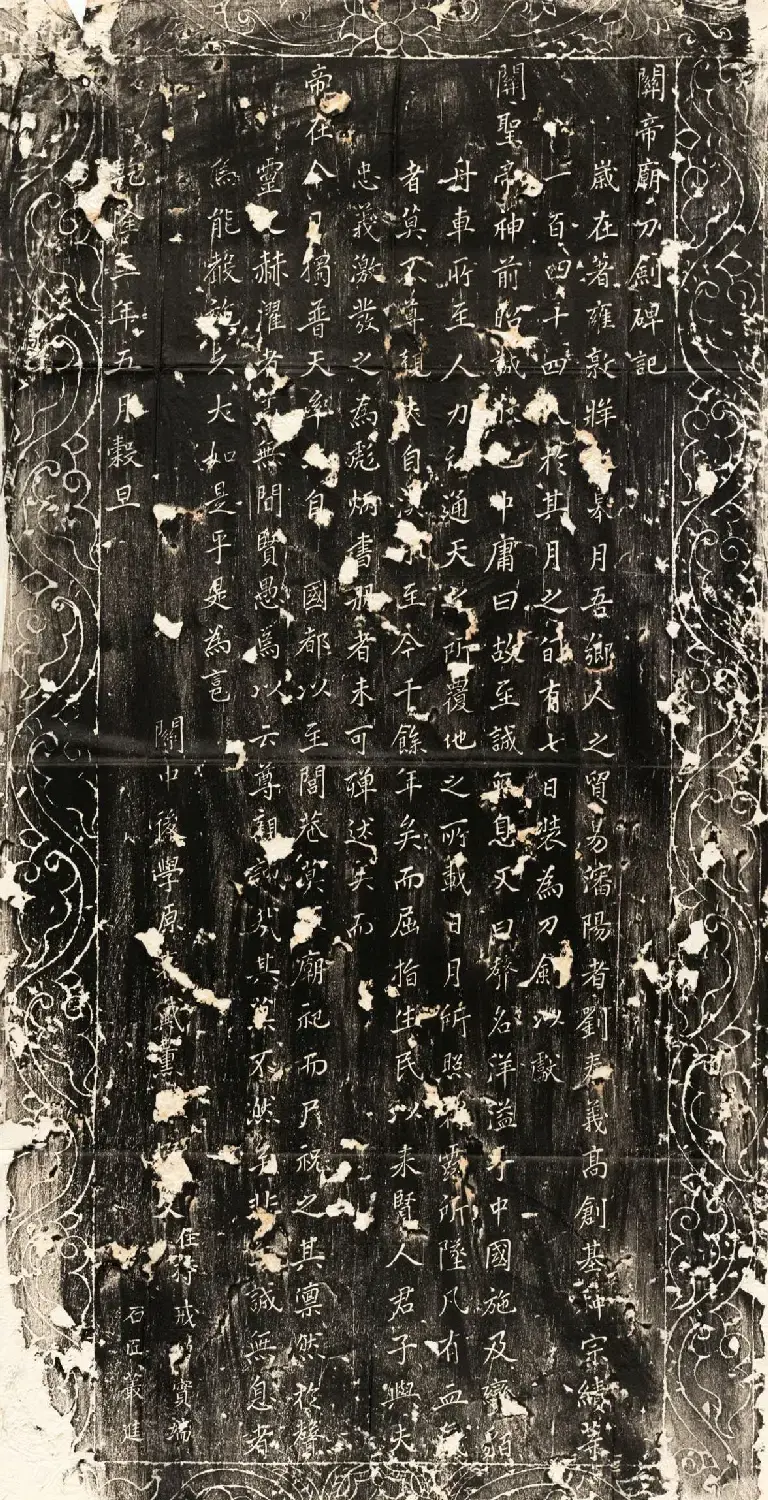 關帝廟刀劍碑記
歲在著雍敦牂皋月吾鄉人之貿易瀋陽者劉泰義高創基宗績等
一百四十四人於其月之旬有七日裝為刀劍以獻
關聖帝神前昭誠中庸曰故至誠無息又曰聲名洋溢乎中國施及蠻貊
舟車所至人力所通天之所覆地之所載日月所照霜露所墜凡有血氣
者莫不尊親夫自漢末至今千餘年矣而屈指生民以來賢人君子與夫
忠義激發之為彪炳書冊者未可殫述矣而
帝在今日獨普天率自國都以至閭巷莫不廟祀而尸祝之其凛然於聲
靈之赫濯者無間賢愚為以云尊親其莫不然乎非至誠無息者
為能久大如是乎爰為
關中後學原
乾隆三年五月穀旦
住持戒實瑞
石匠進